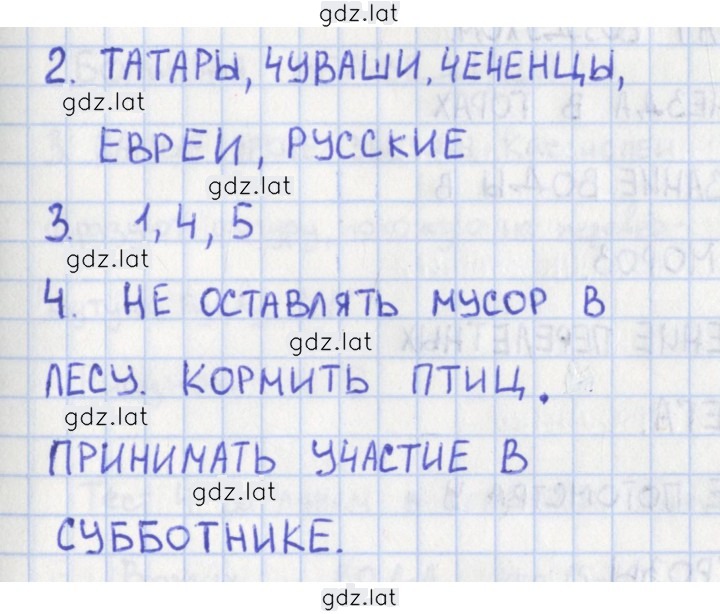 gdz.lat
2. ТАТАРЫ, ЧУВАШИ, ЧЕЧЕНЦЫ,
gdz.lat
ЕВРЕИ, РУССКИЕ
gdz.lat
3. 1, 4, 5
gdz.lat
4. НЕ ОСТАВЛЯТЬ МУСОР В
gdz.lat
ЛЕСУ. КОРМИТЬ ПТИЦ.
gdz.lat
ПРИНИМАТЬ УЧАСТИЕ В
gdz.lat
СУББОТНИКЕ.
gdz.lat